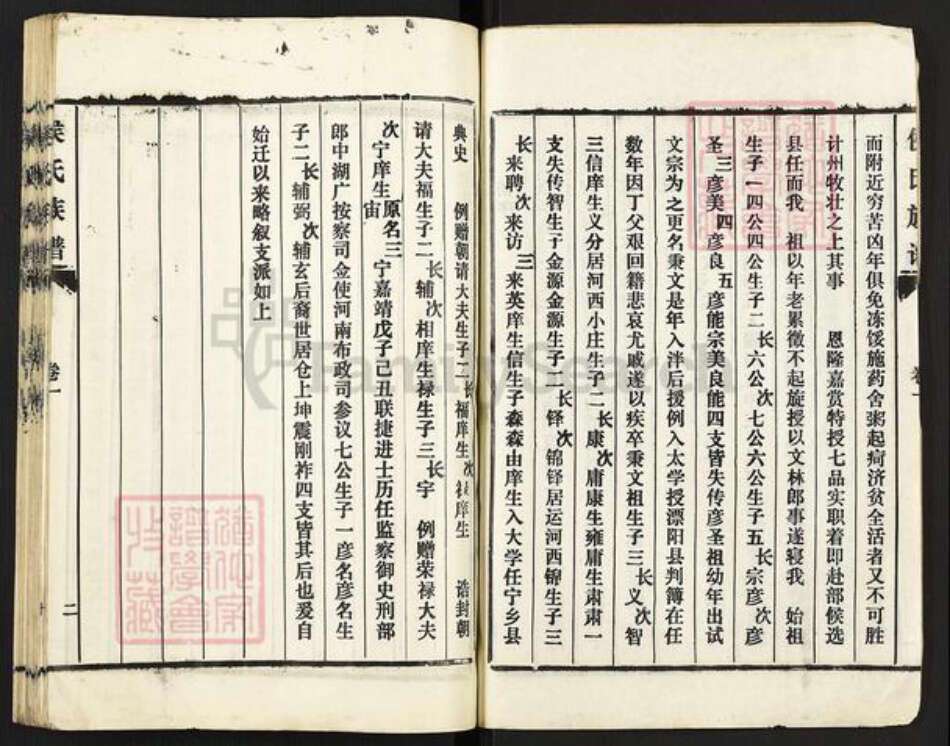 侯氏族谱
卷一
而附近穷苦凶年俱免冻馁施药舍粥起疴济贫全活者又不可胜
计州牧壮之上其事 恩隆嘉赏特授七品实职着即赴部候选
县任而我 祖以年老累徵不起旋授以文林郎事遂寝我 始祖
生子一四公四公生子二长六公次七公六公生子五长宗彦次彦
圣三彦美四彦良五彦能宗美良能四支皆失传彦圣祖幼年出试
文宗为之更名秉文是年入泮后援例入太学授漂阳县判簿在任
数年因丁父艰回籍悲哀尤戚遂以疾卒秉文祖生子三长义次智
三信庠生义分居河西小庄生子二长康次庸康生雍庸生肃肃一
支失传智生子金源金源生子二长铎次锦铎居运河西锦生子三
长来聘次来访三来英庠生信生子森森由庠生入大学任宁乡县
典史 例赠朝请大夫生子二长福庠生次禄庠生 诰封朝
请大夫福生子二长辅次相庠生禄生子三长宇 例赠荣禄大夫
次宁庠生原名宙三宁嘉靖戊子己丑联捷进士历任监察御史刑部
郎中湖广按察司佥使河南布政司参议七公生子一彦名彦名生
子二长辅弼次辅玄后裔世居仓上坤震刚祚四支皆其后也爰自
始迁以来略叙支派如上
侯氏族谱
卷一
二
FamilySearch